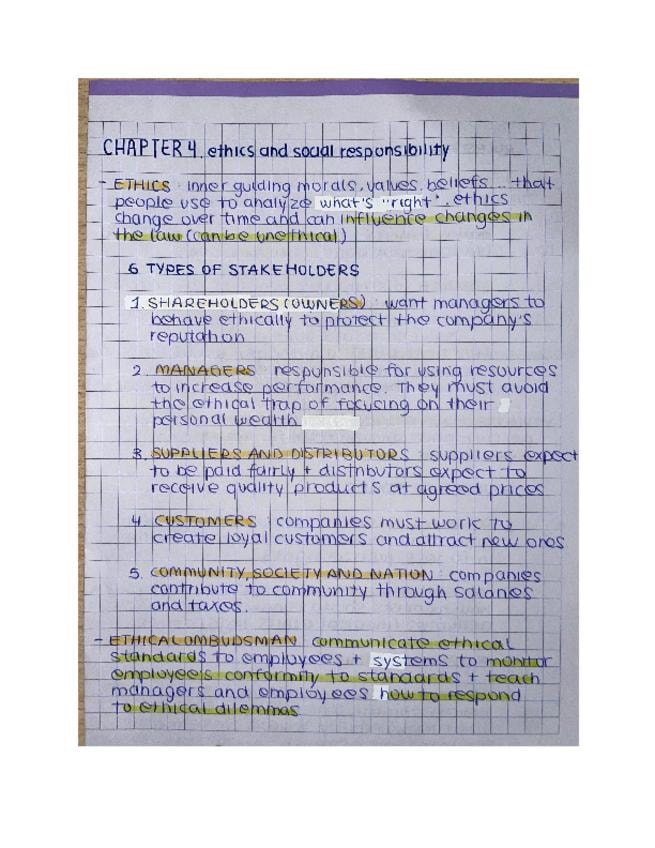 CHAPTER 4. ethics and social responsibility
- ETHICS : inner guiding morals, values, beliefs... that
people use to analyze what's "right". ethics
change over time and can influence changes in
the law (can be unethical)
6 TYPES OF STAKEHOLDERS
1. SHAREHOLDERS (OWNERS) : want managers to
behave ethically to protect the company's
reputation
2. MANAGERS : responsible for using resources
to increase performance. They must avoid
the ethical trap of focusing on their
personal wealth
3. SUPPLIERS AND DISTRIBUTORS : suppliers expect
to be paid fairly + distributors expect to
receive quality products at agreed prices
4. CUSTOMERS : companies must work to
create loyal customers and attract new ones
5. COMMUNITY, SOCIETY AND NATION : companies
contribute to community through salaries
and taxes.
- ETHICAL OMBUDSMAN : communicate ethical
standards to employees + systems to monitor
employee's conformity to standards + teach
managers and employees how to respond
to ethical dilemmas